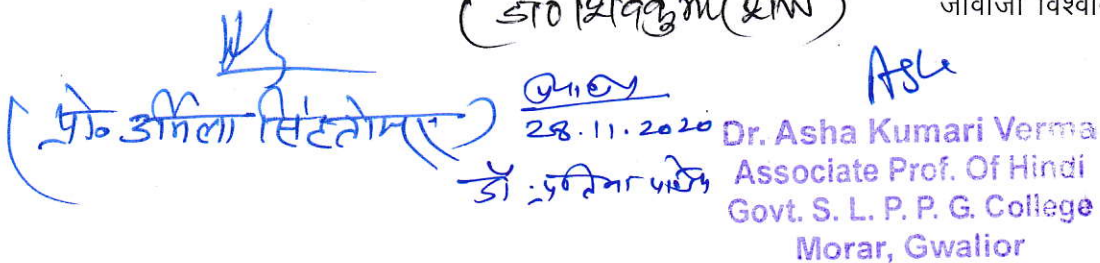 (डॉ० शिवकुमार शर्मा)
जीवाजी विश्व
(प्रो० उर्मिला सिंह तोमर)
28.11.2020
डॉ. प्रतिमा
Asha
Dr. Asha Kumari Verma
Associate Prof. Of Hindi
Govt. S. L. P. P. G. College
Morar, Gwalior